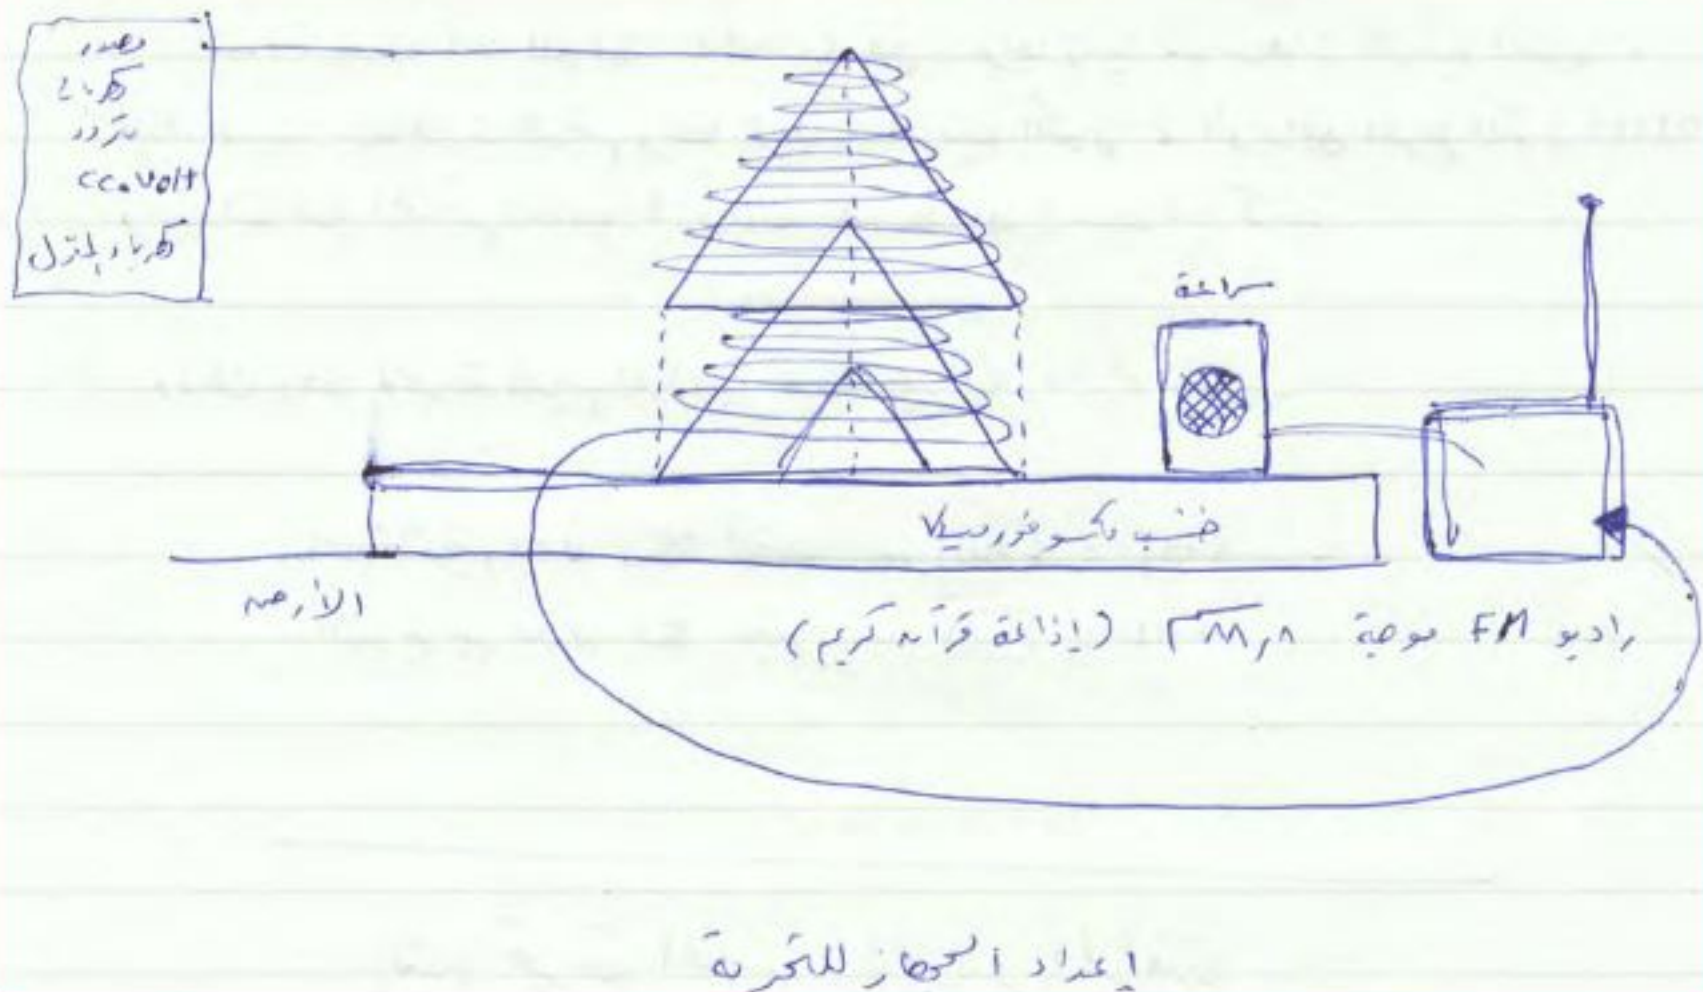 مصدر
كهرباء
تردد
٢٢٠ Volt
كهرباء المنزل
سماعة
خشب
الأرض
راديو FM موجة ٨٨,٨ (إذاعة قرآن كريم)
إعداد الجهاز للتجربة